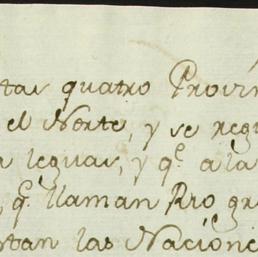 tas quatro Provin
el Norte, y se regu
leguas, y q.e a la
, q.e llaman Rio gr
stan las Nacione